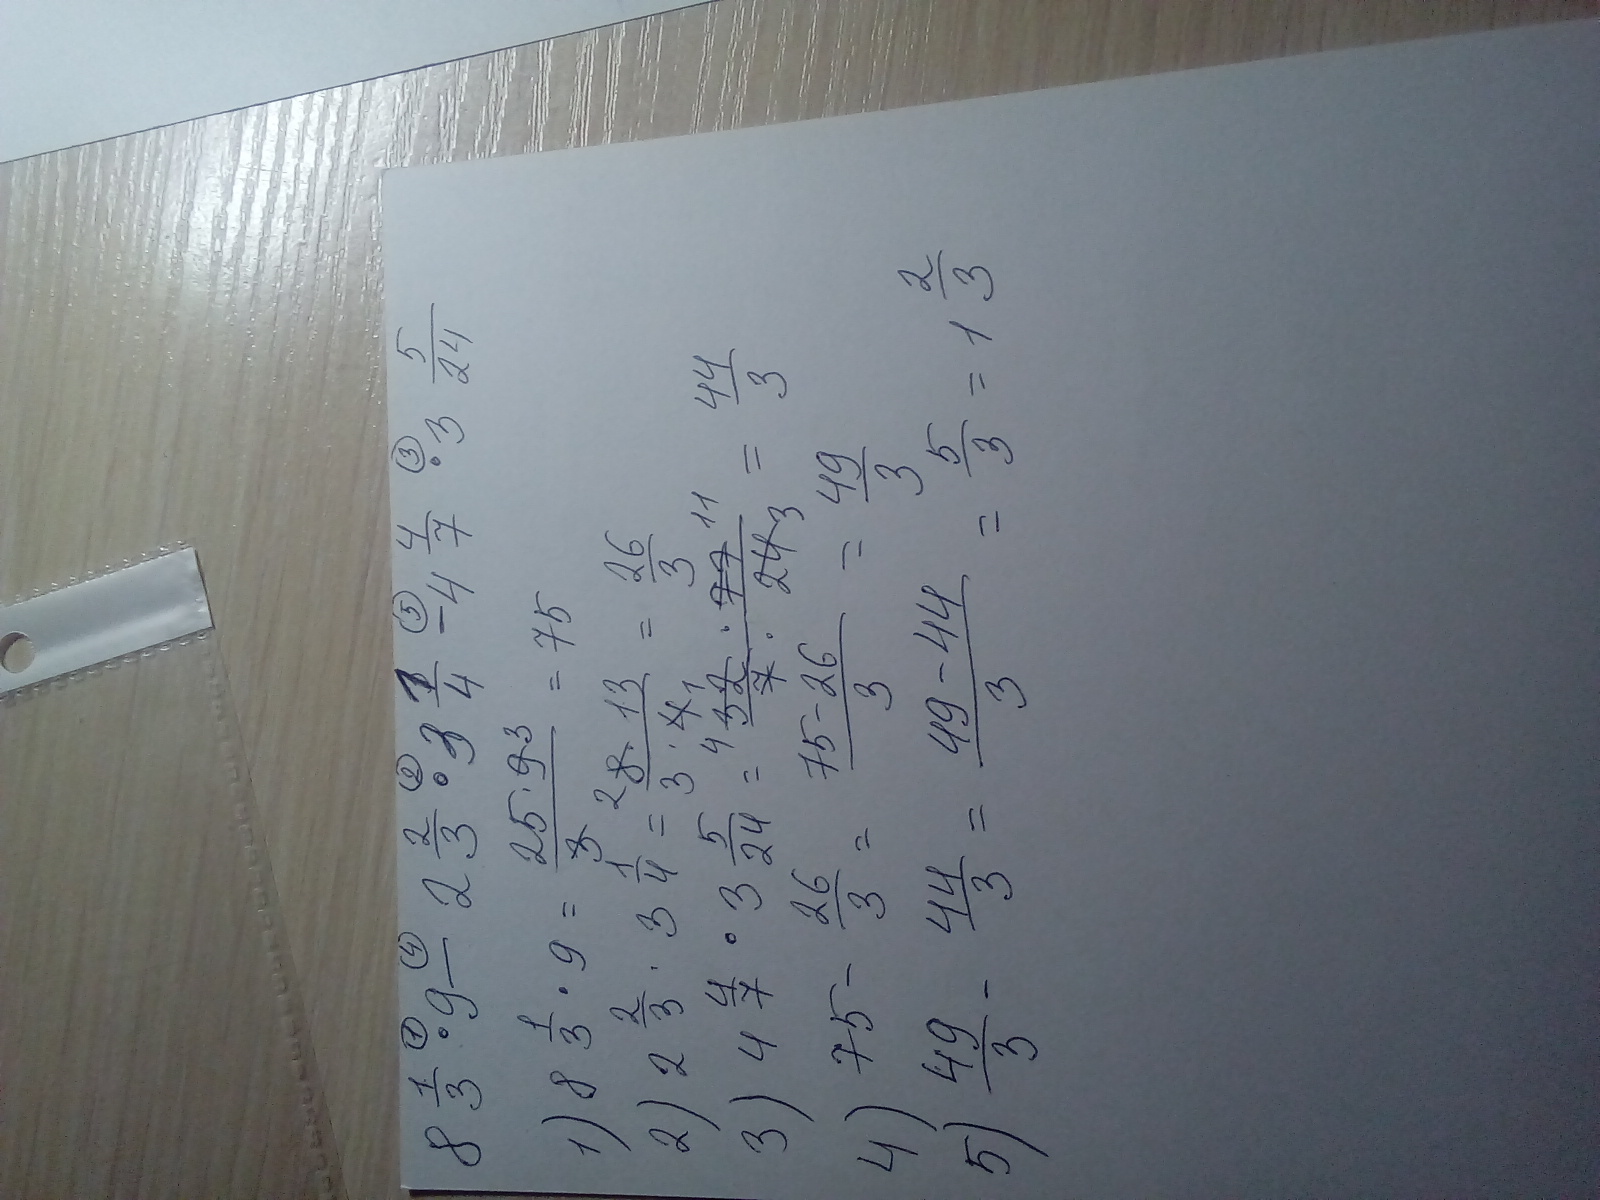 8 1/3 ·① 9 −④ 2 2/3 ·② 3 1/4 −⑤ 4 4/7 ·③ 3 5/24
1) 8 1/3 · 9 = 25·9 3/3 = 75
2) 2 2/3 · 3 1/4 = 2 8·13/3·4 1 = 26/3
3) 4 4/7 · 3 5/24 = 4 32·77 11/7·24 3 = 44/3
4) 75 − 26/3 = 75−26/3 = 49/3
5) 49/3 − 44/3 = 49−44/3 = 5/3 = 1 2/3